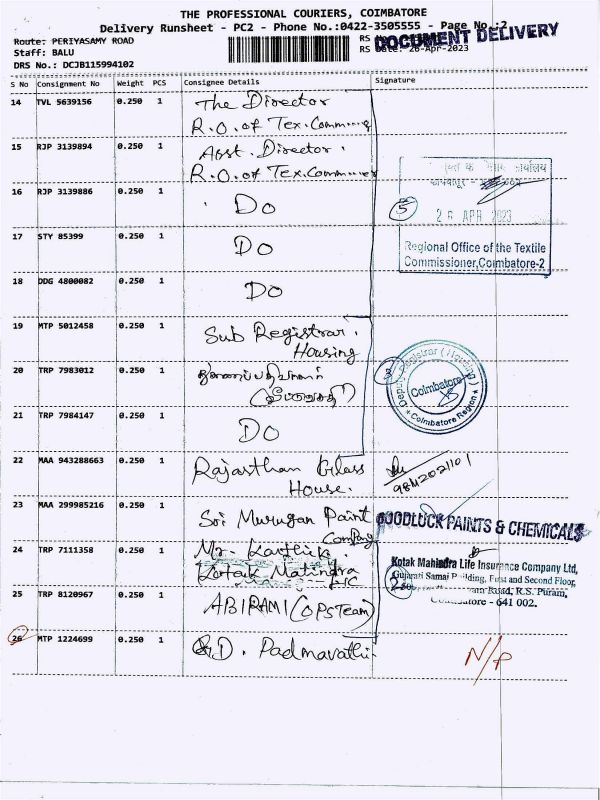 THE PROFESSIONAL COURIERS, COIMBATORE
Delivery Runsheet - PC2 - Phone No.:0422-3505555 - Page No.:2
DOCUMENT DELIVERY
Route: PERIYASAMY ROAD
RS
Staff: BALU
RS Date: 26-Apr-2023
DRS No.: DCJB115994102
S No Consignment No Weight PCS Consignee Details Signature
14 TVL 5639156 0.250 1 The Director
R.O. of Tex. Comming
15 RJP 3139894 0.250 1 Asst. Director.
R.O. of Tex. Commner
16 RJP 3139886 0.250 1 Do
17 STY 85399 0.250 1 Do
18 DDG 4800082 0.250 1 Do
5
26 APR 2023
Regional Office of the Textile
Commissioner, Coimbatore-2
19 MTP 5012458 0.250 1 Sub Registrar.
Housing
20 TRP 7983012 0.250 1
21 TRP 7984147 0.250 1 Do
3
Deputy Registrar (Housing)
Coimbatore
* Coimbatore Region *
22 MAA 943288663 0.250 1 Rajasthan Glass
House.
9842021101
23 MAA 299985216 0.250 1 Sri Murugan Paint
Company
GOODLUCK PAINTS & CHEMICALS
24 TRP 7111358 0.250 1 Mr. Karthik.
Kotak Matindra
LIC
25 TRP 8120967 0.250 1 ABIRAMI (OPS Team)
2
Kotak Mahindra Life Insurance Company Ltd,
Gujarati Samaj Building, First and Second Floor,
Road, R.S. Puram,
Coimbatore - 641 002.
26 MTP 1224699 0.250 1 D. Padmavathi.
N/P